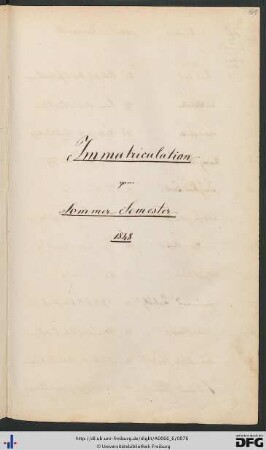 Immatriculation
zum
Sommer-Semester
1848
http://dl.ub.uni-freiburg.de/diglit/A0066_6/0075
© Universitätsbibliothek Freiburg
DFG